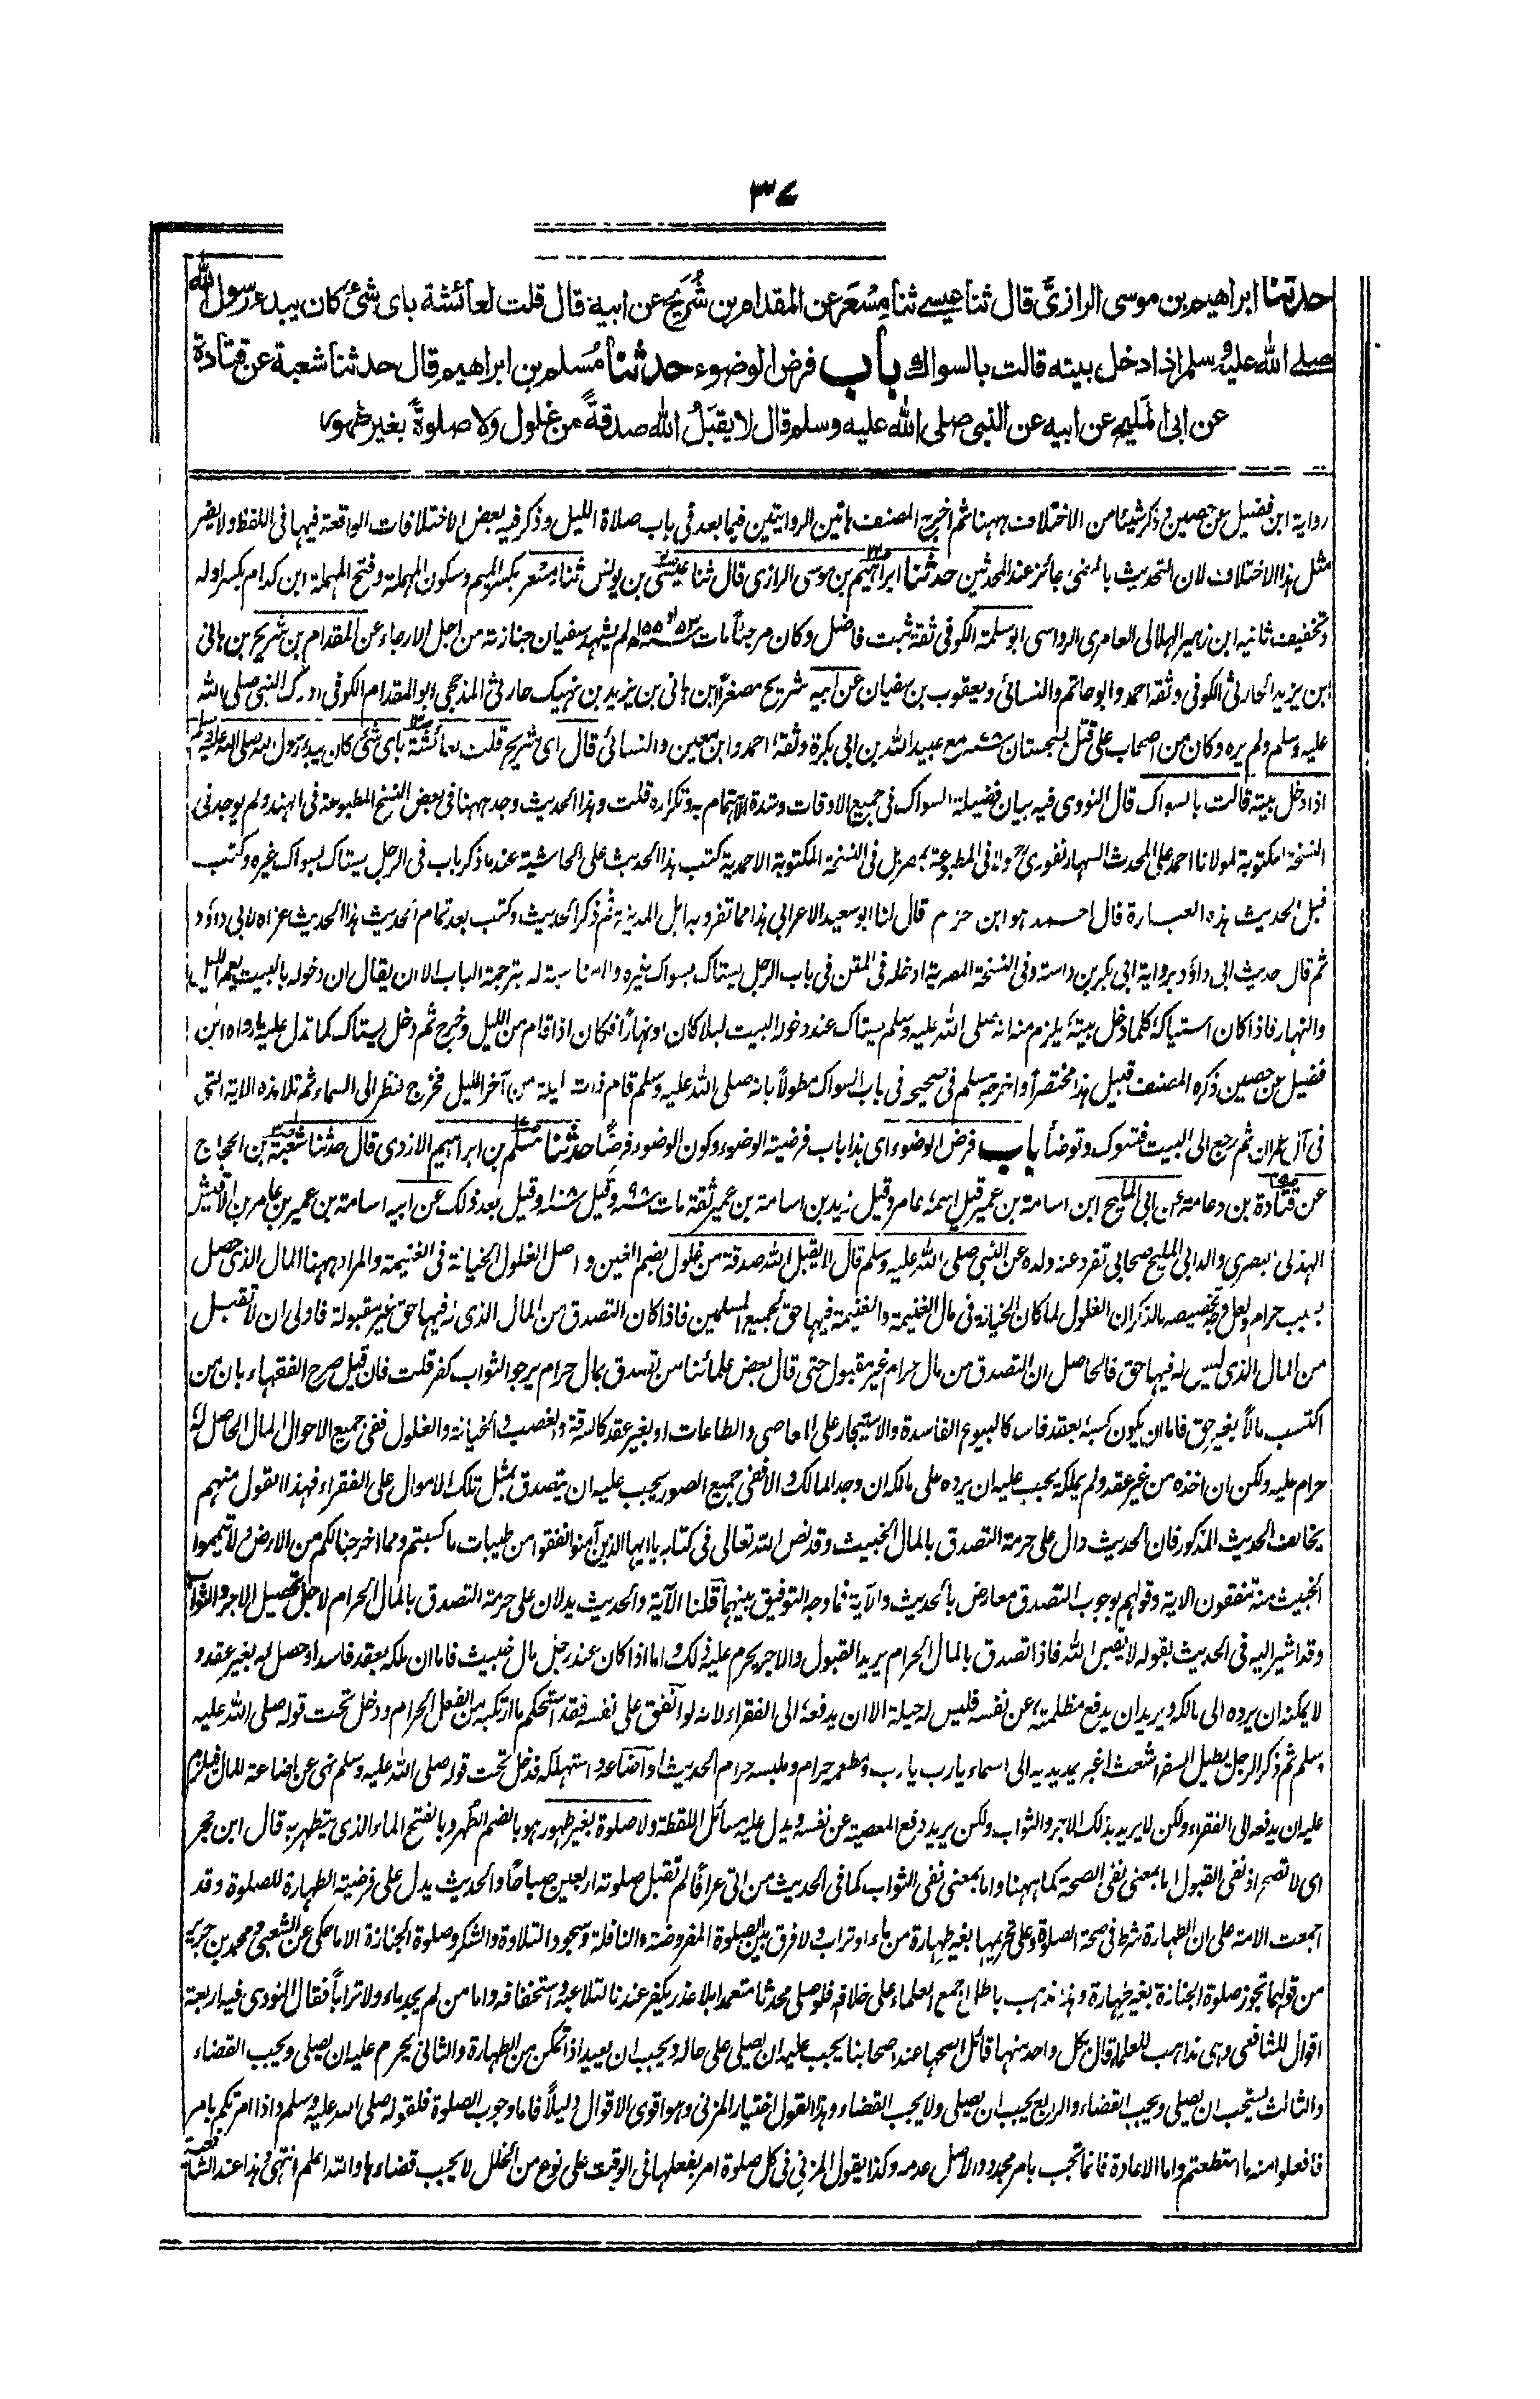 ٣٧
حدثنا ابراهيم بن موسى الرازيُّ قال ثنا عيسے ثنا مِسْعَر عن المقدام بن شُرَيح عن ابيه قال قلت لعائشة باى شئ كان يبدء رسول الله
صلے الله عليه وسلم اذا دخل بيته قالت بالسواك باب فرض الوضوء حدثنا مُسلم بن ابراهيم قال حدثنا شعبة عن قتادة
عن ابى المَليح عن ابيه عن النبى صلى الله عليه وسلم قال لا يقبَلُ الله صدقةً من غلول ولا صلوةً بغير طهور
رواية ابن فضيل عن حصين وذكر شيئا من الاختلاف ههنا ثم اخرج المصنف هاتين الروايتين فيما بعد فى باب صلاة الليل وذكر فيه بعض الاختلافات الواقعة فيها فى اللفظ ولا يضر
مثل هذا الاختلاف لان التحديث بالمعنى جائز عند المحدثين حدثنا ابراهيم بن موسى الرازى قال ثنا عيسى بن يونس ثنا مسعر بكسر الميم وسكون المهملة وفتح المهملة ابن كدام بكسر اوله
وتخفيف ثانيه ابن زهير الهلالى العامرى الرواسى ابو سلمة الكوفى ثقة ثبت فاضل وكان مرجئاً مات سنة ١٥٣ او ١٥٥ ولم يشهد سفيان جنازته من اجل الارجاء عن المقدام بن شريح بن هانى
ابن يزيد الحارثى الكوفى وثقه احمد وابو حاتم والنسائى ويعقوب بن سفيان عن ابيه شريح مصغراً ابن هانى بن يزيد بن نهيك حارثى المذحجى ابو المقدام الكوفى ادرك النبى صلى الله
عليه وسلم ولم يره وكان من اصحاب على قتل بسجستان سنة ٧٨ مع عبيد الله بن ابى بكرة وثقه احمد وابن معين والنسائى قال اى شريح قلت لعائشة باى شئ كان يبدء رسول الله صلى الله عليه وسلم
اذا دخل بيته قالت بالسواك قال النووى فيه بيان فضيلة السواك فى جميع الاوقات وشدة الاهتمام به وتكراره قلت وهذا الحديث وجد ههنا فى بعض النسخ المطبوعة فى الهند ولم يوجد فى
النسخة المكتوبة لمولانا احمد على المحدث السهارنفورى ولا فى المطبوعة بمصر بل فى النسخة المكتوبة الاحمدية كتب هذا الحديث على الحاشية عند ما ذكر باب فى الرجل يستاك بسواك غيره وكتب
قبل الحديث هذه العبارة قال احمد هو ابن حزم قال لنا ابو سعيد الاعرابى هذا مما تفرد به اهل المدينة ثم ذكر الحديث وكتب بعد تمام الحديث هذا الحديث عزاه لابى داؤد
ثم قال حديث ابى داؤد برواية ابى بكر بن داسة وفى النسخة المصرية ادخله فى المتن فى باب الرجل يستاك بسواك غيره ولا مناسبة له بترجمة الباب الا ان يقال ان دخوله بالبيت يعم الليل
والنهار فاذا كان استياكه كلما دخل بيته يلزم منه انه صلى الله عليه وسلم يستاك عند دخوله البيت ليلا كان او نهاراً فكان اذا قام من الليل وخرج ثم دخل يستاك كما تدل عليه رواه ابن
فضيل عن حصين ذكره المصنف قبيل هذا مختصراً واخرجه مسلم فى صحيحه فى باب السواك مطولاً بانه صلى الله عليه وسلم قام ذات ليلة من آخر الليل فخرج فنظر الى السماء ثم تلا هذه الاية التى
فى آل عمران ثم رجع الى البيت فتسوك وتوضأ باب فرض الوضوء اى هذا باب فرضية الوضوء وكون الوضوء فرضًا حدثنا مسلم بن ابراهيم الازدى قال حدثنا شعبة بن الحجاج
عن قتادة بن دعامة عن ابى المليح ابن اسامة بن عمير قيل اسمه عامر وقيل زيد بن اسامة بن عمير ثقة مات سنة ٩٨ وقيل سنة ١٠٨ وقيل بعد ذلك عن ابيه اسامة بن عمير بن عامر بن الاقيش
الهذلى البصرى والد ابى المليح صحابى تفرد عنه ولده عن النبى صلى الله عليه وسلم قال لا يقبل الله صدقة من غلول بضم الغين واصل الغلول الخيانة فى الغنيمة والمراد ههنا المال الذى حصل
بسبب حرام ولعل وجه تخصيصه بالذكر ان الغلول لما كان الخيانة فى مال الغنيمة والغنيمة فيها حق لجميع المسلمين فاذا كان التصدق من المال الذى له فيها حق غير مقبولة فاولى ان لا تقبل
من المال الذى ليس له فيها حق فالحاصل ان التصدق من مال حرام غير مقبول حتى قال بعض علمائنا من تصدق بمال حرام يرجو الثواب كفر قلت فان قيل صرح الفقهاء بان من
اكتسب مالاً بغير حق فاما ان يكون كسبه بعقد فاسد كالبيوع الفاسدة والاستيجار على المعاصى والطاعات او بغير عقد كالسرقة والغصب والخيانة والغلول ففى جميع الاحوال المال الحاصل له
حرام عليه ولكن ان اخذه من غير عقد ولم يملكه يجب عليه ان يرده على مالكه ان وجد المالك والا ففى جميع الصور يجب عليه ان يتصدق بمثل تلك الاموال على الفقراء فهذا القول منهم
يخالف الحديث المذكور فان الحديث دال على حرمة التصدق بالمال الخبيث وقد نص الله تعالى فى كتابه يا ايها الذين آمنوا انفقوا من طيبات ما كسبتم ومما اخرجنا لكم من الارض ولا تيمموا
الخبيث منه تنفقون الاية وقولهم بوجوب التصدق معارض بالحديث والآية فما وجه التوفيق بينهما قلنا الآية والحديث يدلان على حرمة التصدق بالمال الحرام لاجل تحصيل الاجر والثواب
وقد اشير اليه فى الحديث بقوله لا يقبل الله فاذا تصدق بالمال الحرام يريد القبول والاجر يحرم عليه ذلك واما اذا كان عند رجل مال خبيث فاما ان ملكه بعقد فاسد او حصل له بغير عقد و
لا يمكنه ان يرده الى مالكه ويريد ان يدفع مظلمته عن نفسه فليس له حيلة الا ان يدفعه الى الفقراء لانه لو انفق على نفسه فقد استحكم ما ارتكبه من الفعل الحرام ودخل تحت قوله صلى الله عليه
وسلم ثم ذكر الرجل يطيل السفر اشعث اغبر يمد يديه الى السماء يا رب يا رب ومطعمه حرام وملبسه حرام الحديث او اضاعه واستهلكه فدخل تحت قوله صلى الله عليه وسلم نهى عن اضاعة المال فيلزم
عليه ان يدفعه الى الفقراء ولكن لا يريد بذلك الاجر والثواب ولكن يريد دفع المعصية عن نفسه ويدل عليه مسائل اللقطة ولا صلوة بغير طهور هو بالضم الطُهر وبالفتح الماء الذى يتطهر به قال ابن حجر
اى لا تصح اذ نفى القبول اما بمعنى نفى الصحة كما ههنا واما بمعنى نفى الثواب كما فى الحديث من اتى عرافًا لم تقبل صلوته اربعين صباحًا والحديث يدل على فرضية الطهارة للصلوة وقد
اجمعت الامة على ان الطهارة شرط فى صحة الصلوة وعلى تحريمها بغير طهارة من ماء او تراب ولا فرق بين الصلوة المفروضة والنافلة وسجود التلاوة والشكر وصلوة الجنازة الا ما حكى عن الشعبى ومحمد بن جرير
من قولهما تجوز صلوة الجنازة بغير طهارة وهذا مذهب باطل اجمع العلماء على خلافه فلو صلى محدثا متعمدا بلا عذر يكفر عندنا لتلاعبه واستخفافه واما من لم يجد ماء ولا تراباً فقال النووى فيه اربعة
اقوال للشافعى وهى مذاهب للعلماء قال بكل واحد منها قائل اصحها عند اصحابنا يجب عليه ان يصلى على حاله ويجب ان يعيد اذا تمكن من الطهارة والثانى يحرم عليه ان يصلى ويجب القضاء
والثالث يستحب ان يصلى ويجب القضاء والرابع يجب ان يصلى ولا يجب القضاء وهذا القول اختيار المزنى وهو اقوى الاقوال دليلاً فاما وجوب الصلوة فلقوله صلى الله عليه وسلم واذا امرتكم بامر
فافعلوا منه ما استطعتم واما الاعادة فانما تجب بامر مجدد والاصل عدمه وكذا يقول المزنى فى كل صلوة امر بفعلها فى الوقت على نوع من الخلل لا يجب قضاءها والله اعلم انتهى وهذا عند الشافعية